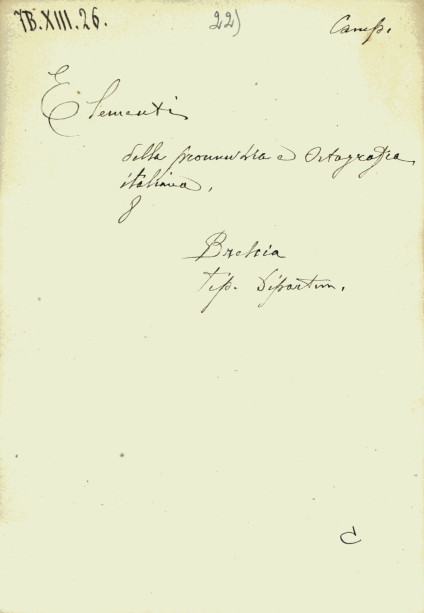 7B.XIII.26. 22) Camp.
Elementi
della pronunzia e Ortografia
italiana,
8
Brescia
Tip. Dipartim.
C